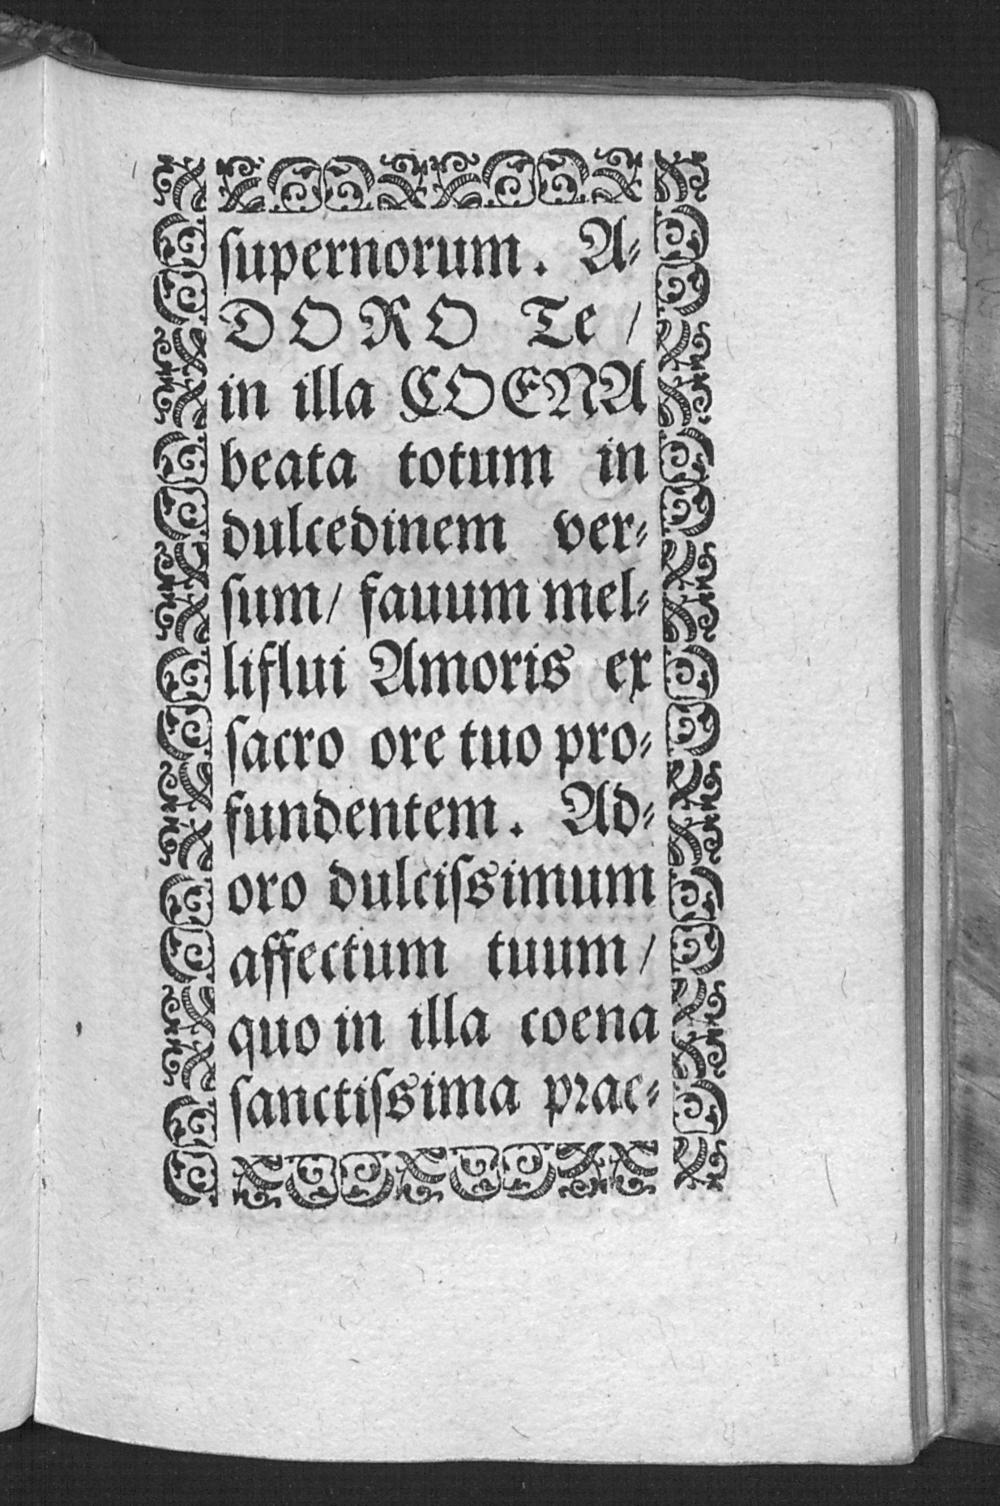 ſupernorum. A⸗
DORO Te /
in illa COENA
beata totum in
dulcedinem ver⸗
ſum/ fauum mel⸗
liflui Amoris ex
ſacro ore tuo pro⸗
fundentem. Ad⸗
oro dulciſsimum
affectum tuum /
quo in illa coena
ſanctiſsima prae⸗